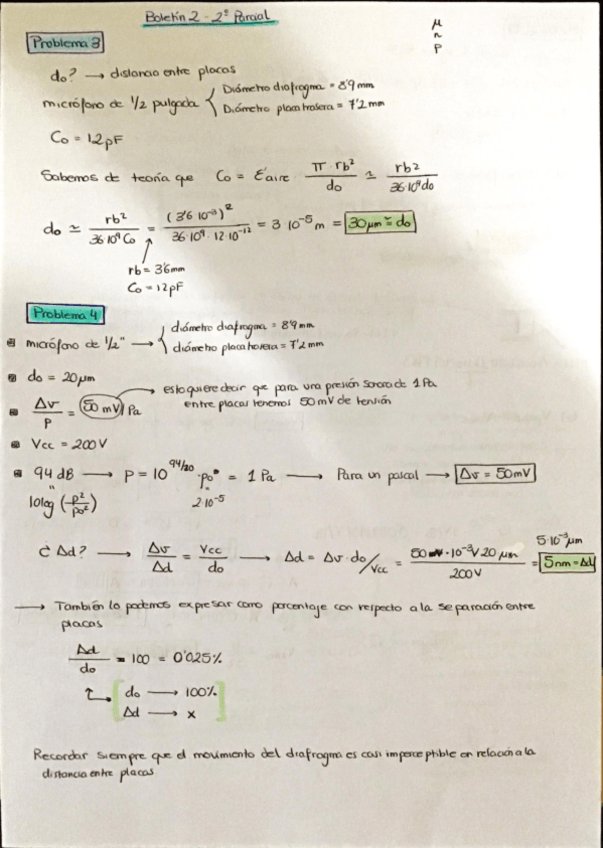 Boletín 2 - 2º Parcial
μ
n
p
Problema 3
do? → distancia entre placas
micrófono de 1/2 pulgada { Diámetro diafragma = 8'9 mm
Diámetro placa trasera = 7'2 mm
Co = 12pF
Sabemos de teoría que Co = εaire · π · rb² / do ≃ rb² / 36·10⁹do
do ≃ rb² / 36·10⁹ Co = (3'6·10⁻³)² / 36·10⁹ · 12·10⁻¹² = 3·10⁻⁵ m = 30 μm ≃ do
rb = 3'6mm
Co = 12pF
Problema 4
micrófono de 1/2" → { diámetro diafragma = 8'9 mm
diámetro placa trasera = 7'2 mm
do = 20 μm
Δv / P = 50 mV / Pa → esto quiere decir que para una presión sonora de 1 Pa
entre placas tenemos 50 mV de tensión
Vcc = 200V
94 dB → P = 10^94/20 · po = 1 Pa → Para un pascal → Δv = 50mV
"
10log (p² / po²)
"
2·10⁻⁵
¿ Δd? → Δv / Δd = Vcc / do → Δd = Δv · do / Vcc = 50 · 10⁻³V · 20 μm / 200V = 5·10⁻³ μm = 5nm = Δd
→ También lo podemos expresar como porcentaje con respecto a la separación entre
placas
Δd / do = 100 = 0'025%
[ do → 100%
Δd → x ]
Recordar siempre que el movimiento del diafragma es casi imperceptible en relación a la
distancia entre placas